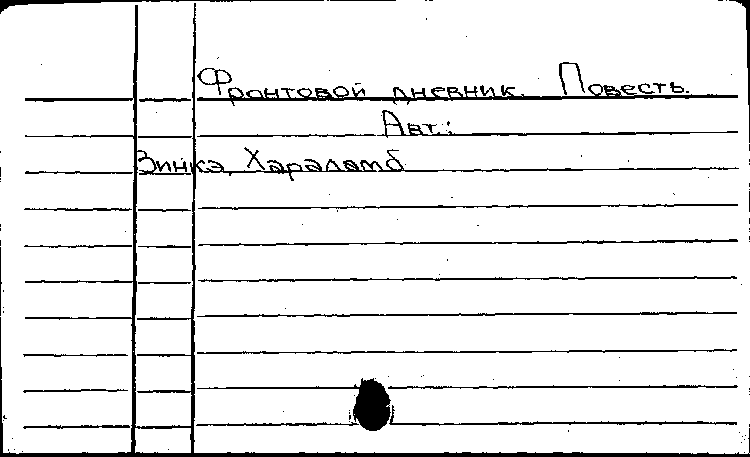 Фронтовой дневник. Повесть.
Авт.:
Зинкэ, Хараламб